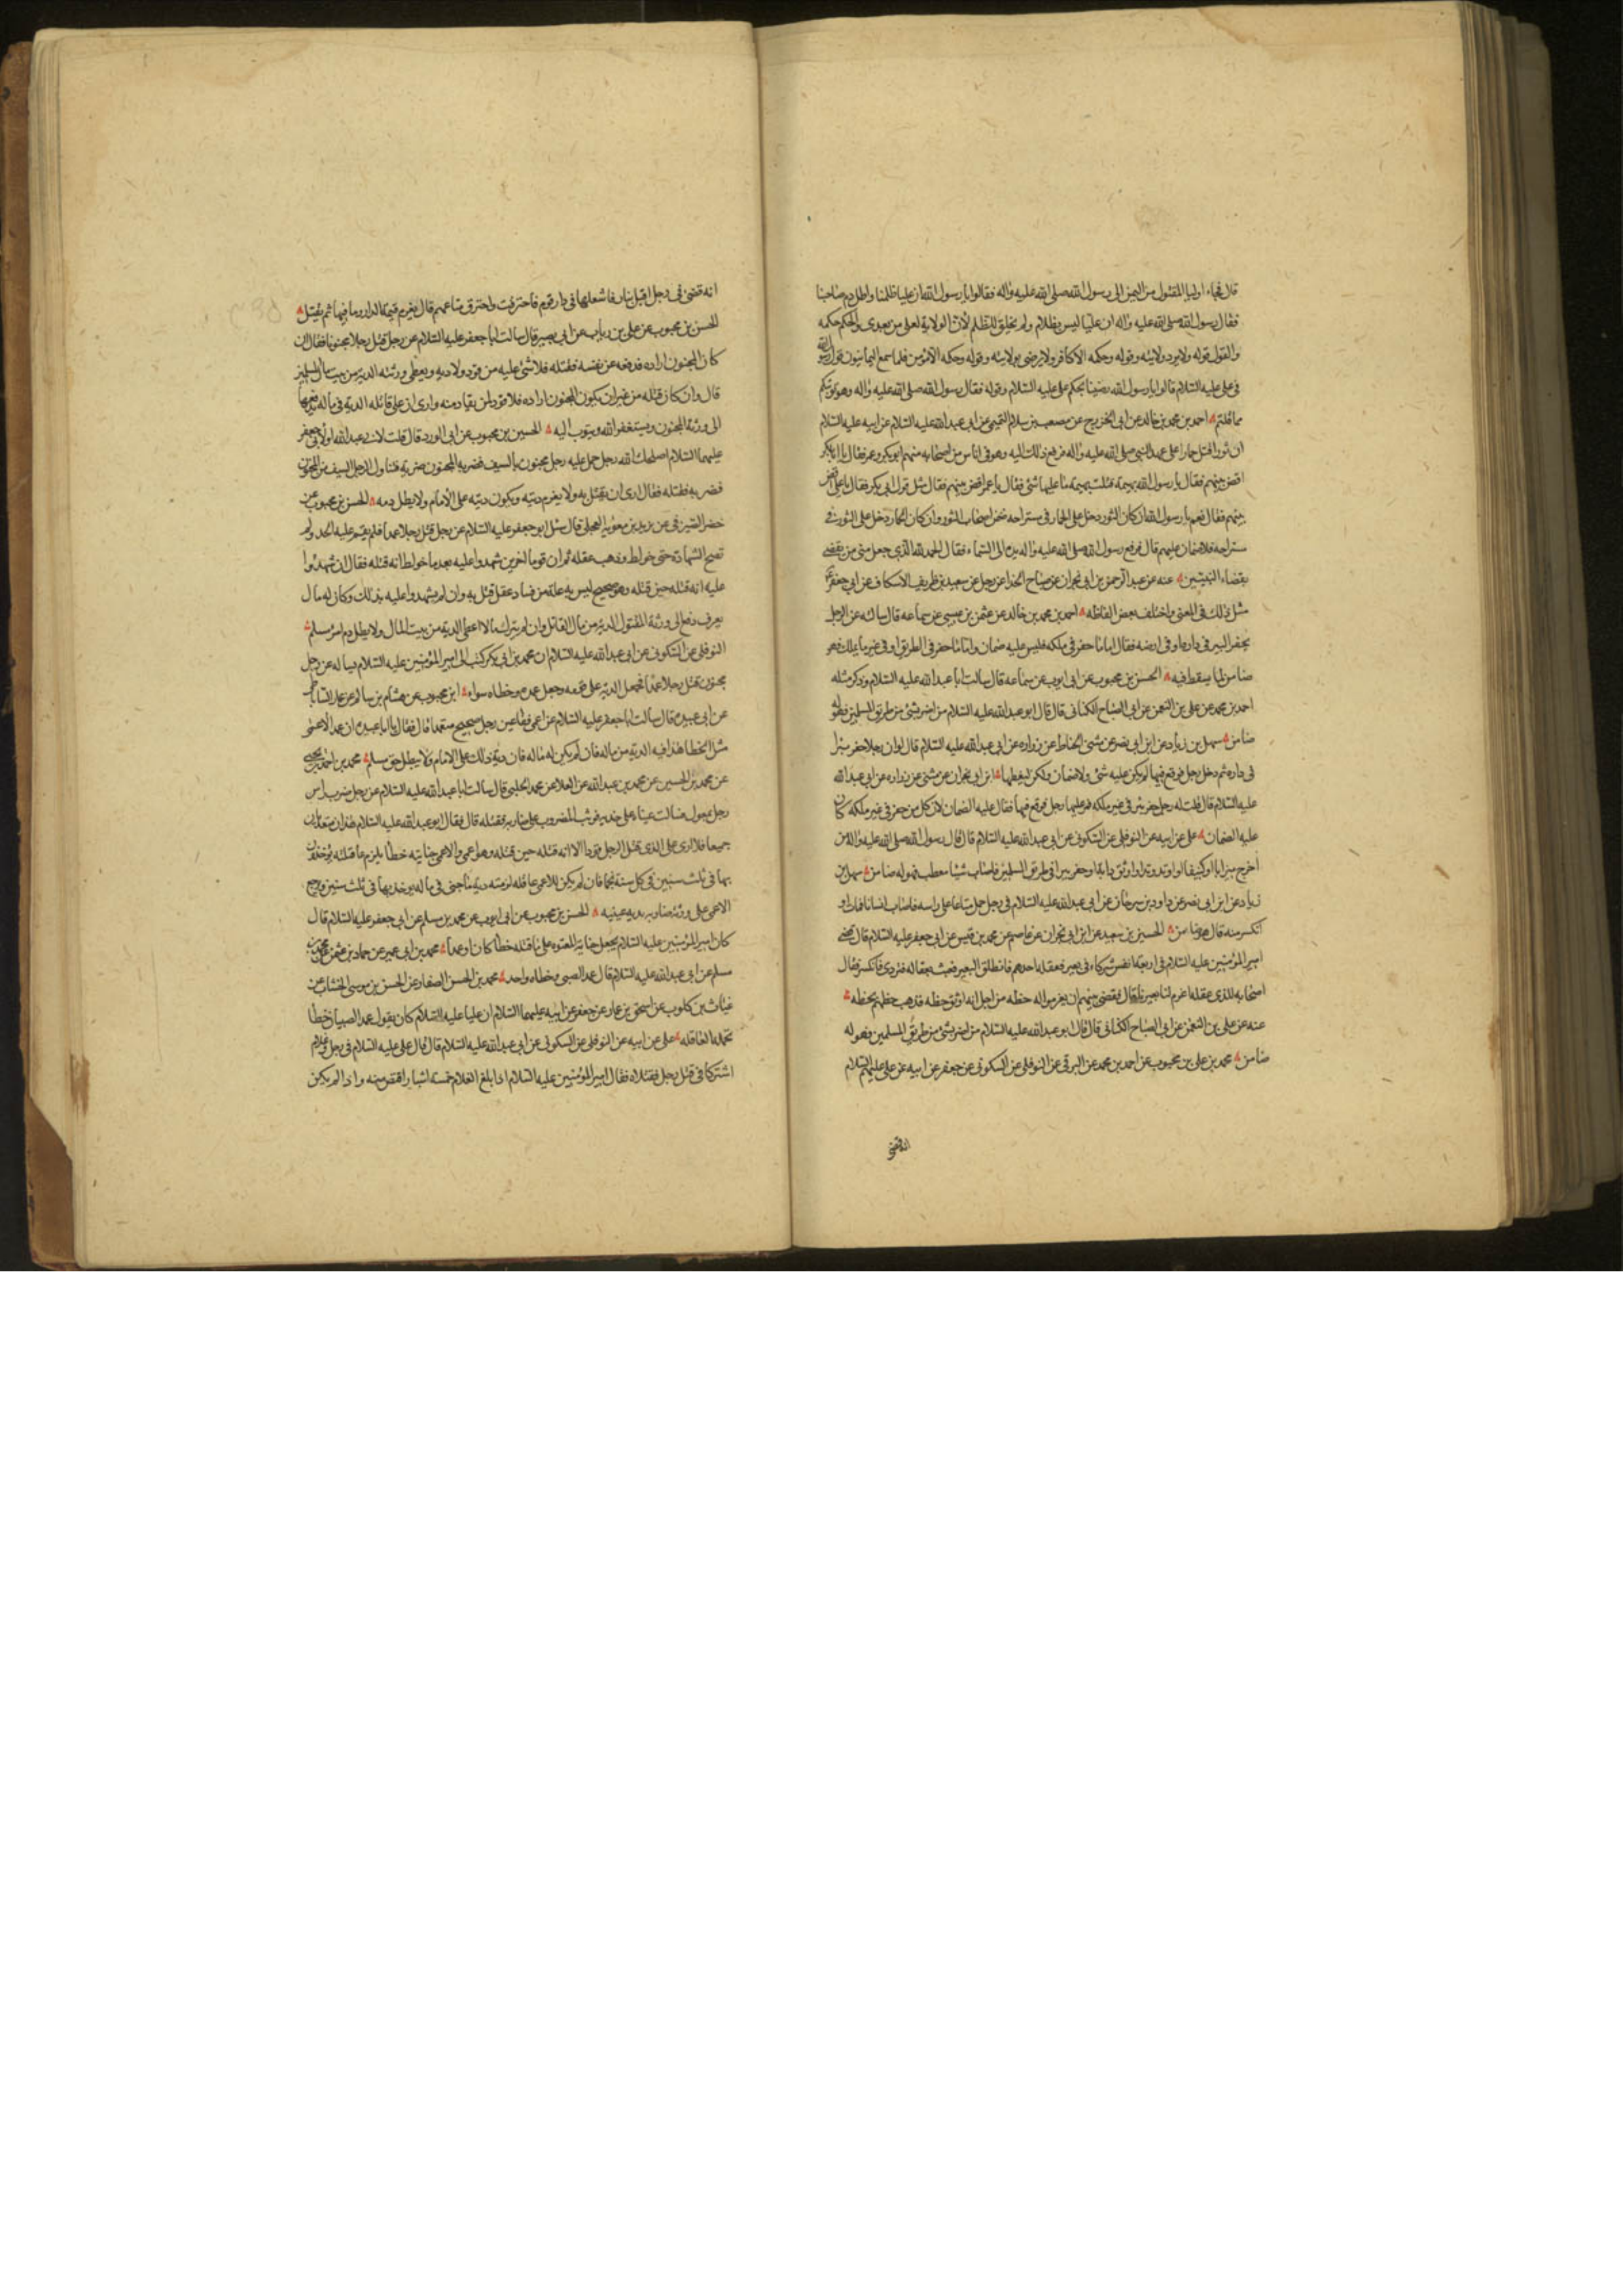 قال فجاء اولياء المقتول من اليمن الى رسول الله صلى الله عليه واله فقالوا يا رسول الله ان عليا ظلمنا وابطل دم صاحبنا
فقال رسول الله صلى الله عليه واله ان عليا ليس بظلام ولم يخلق للظلم لان الولاية لعلي من بعدي والحكم حكمه
والقول قوله ولا يرد ولايته وقوله وحكمه الا كافر ولا يرضى بولايته وقوله وحكمه الا مؤمن فلما سمع اليمانيون قول رسول الله
في علي عليه السلام قالوا يا رسول الله رضينا بحكم علي عليه السلام وقوله فقال رسول الله صلى الله عليه واله وهو توبتكم
مما قلتم احمد بن محمد بن خالد عن ابي الخزرج عن مصعب بن سلام التميمي عن ابي عبد الله عليه السلام عن ابيه عليه السلام
ان ثورا قتل حمارا على عهد النبي صلى الله عليه واله فرفع ذلك اليه وهو في اناس من اصحابه منهم ابو بكر وعمر فقال يا ابا بكر
اقض بينهم فقال يا رسول الله بهيمة قتلت بهيمة ما عليها شئ فقال يا عمر اقض بينهم فقال مثل قول ابي بكر فقال يا علي اقض
بينهم فقال نعم يا رسول الله ان كان الثور دخل على الحمار في مستراحه ضمن اصحاب الثور وان كان الحمار دخل على الثور في
مستراحه فلا ضمان عليهم قال فرفع رسول الله صلى الله عليه واله يده الى السماء فقال الحمد لله الذي جعل مني من يقضي
بقضاء النبيين عنه عن عبد الرحمن بن ابي نجران عن صباح الحذا عن رجل عن سعيد بن طريف الاسكاف عن ابي جعفر
مثل ذلك في المعنى واختلف بعض الفاظه احمد بن محمد بن خالد عن عثمن بن عيسى عن سماعه قال سالته عن الرجل
يحفر البير في داره او في ارضه فقال اما ما حفر في ملكه فليس عليه ضمان واما ما حفر في الطريق او في غير ما يملك فهو
ضامن لما يسقط فيه الحسن بن محبوب عن ابي ايوب عن سماعه قال سالت ابا عبد الله عليه السلام وذكر مثله
احمد بن محمد عن علي بن النعمن عن ابي الصباح الكناني قال قال ابو عبد الله عليه السلام من اضر بشئ من طريق المسلمين فهو له
ضامن سهل بن زياد عن ابن ابي نصر عن مثنى الحناط عن زراره عن ابي عبد الله عليه السلام قال لو ان رجلا حفر بيرا
في داره ثم دخل رجل فوقع فيها لم يكن عليه شئ ولا ضمان ولكن ليغطها ابن ابي نجران عن مثنى عن زراره عن ابي عبد الله
عليه السلام قال قلت له رجل حفر بئرا في غير ملكه فمر عليها رجل فوقع فيها فقال عليه الضمان لان كل من حفر في غير ملكه كان
عليه الضمان علي عن ابيه عن النوفلي عن السكوني عن ابي عبد الله عليه السلام قال قال رسول الله صلى الله عليه واله من
اخرج ميزابا او كنيفا او اوتد وتدا او اوثق دابة او حفر بيرا في طريق المسلمين فاصاب شيئا فعطب فهو له ضامن سهل بن
زياد عن ابن ابي نصر عن داود بن سرحان عن ابي عبد الله عليه السلام في رجل حمل متاعا على راسه فاصاب انسانا فمات او
انكسر منه قال هو ضامن الحسين بن سعيد عن ابن ابي نجران عن عاصم عن محمد بن قيس عن ابي جعفر عليه السلام قال قضى
امير المؤمنين عليه السلام في اربعة انفس شركاء في بعير فعقله احدهم فانطلق البعير فعبث بعقاله فتردى فانكسر فقال
اصحابه للذي عقله اغرم لنا بعيرنا قال فقضى بينهم ان يغرموا له حظه من اجل انه اوثق حظه فذهب حظهم بحظه
عنه عن علي بن النعمن عن ابي الصباح الكناني قال قال ابو عبد الله عليه السلام من اضر بشئ من طريق المسلمين فهو له
ضامن محمد بن علي بن محبوب عن احمد بن محمد عن البرقي عن النوفلي عن السكوني عن جعفر عن ابيه عن علي عليهم السلام
انه قضى
انه قضى في رجل اقبل بنار فاشعلها في دار قوم فاحترقت واحترق متاعهم قال يغرم قيمة الدار وما فيها ثم يقتل
الحسن بن محبوب عن علي بن رياب عن ابي بصير قال سالت ابا جعفر عليه السلام عن رجل قتل رجلا مجنونا فقال ان
كان المجنون اراده فدفعه عن نفسه فقتله فلا شئ عليه من قود ولا دية ويعطى ورثته الدية من بيت مال المسلمين
قال وان كان قتله من غير ان يكون المجنون اراده فلا قود لمن يقاد منه وارى ان على قاتله الدية في ماله يدفعها
الى ورثة المجنون ويستغفر الله ويتوب اليه الحسين بن محبوب عن ابي الورد قال قلت لابي عبد الله او لابي جعفر
عليهما السلام اصلحك الله رجل حمل عليه رجل مجنون بالسيف فضربه المجنون ضربة فتناول الرجل السيف من المجنون
فضربه فقتله فقال ارى ان لا يقتل به ولا يغرم ديته ويكون ديته على الامام ولا يطل دمه الحسن بن محبوب عن
خضر الصيرفي عن بريد بن معوية العجلي قال سئل ابو جعفر عليه السلام عن رجل قتل رجلا عمدا فلم يقم عليه الحد ولم
تصح الشهادة حتى خولط وذهب عقله ثم ان قوما اخرين شهدوا عليه بعد ما خولط انه قتله فقال ان شهدوا
عليه انه قتله حين قتله وهو صحيح ليس به علة من فساد عقل قتل به وان لم يشهدوا عليه بذلك وكان له مال
يعرف دفع الى ورثة المقتول الدية من مال القاتل وان لم يترك مالا اعطى الدية من بيت المال ولا يطل دم امرء مسلم
النوفلي عن السكوني عن ابي عبد الله عليه السلام ان محمد بن ابي بكر كتب الى امير المؤمنين عليه السلام يساله عن رجل
مجنون قتل رجلا عمدا فجعل الدية على قومه وجعل عمده وخطاه سواء ابن محبوب عن هشام بن سالم عن عمار الساباطي
عن ابي عبيدة قال سالت ابا جعفر عليه السلام عن اعمى فقا عين رجل صحيح متعمدا قال فقال يا ابا عبيدة ان عمد الاعمى
مثل الخطا هذا فيه الدية من ماله فان لم يكن له مال فان دية ذلك على الامام ولا يبطل حق مسلم محمد بن احمد بن يحيى
عن محمد بن الحسين عن محمد بن عبد الله عن العلا عن محمد الحلبي قال سالت ابا عبد الله عليه السلام عن رجل ضرب راس
رجل بمعول فسالت عيناه على خديه فوثب المضروب على ضاربه فقتله قال فقال ابو عبد الله عليه السلام هذان متعديان
جميعا فلا ارى على الذي قتل الرجل قودا لانه قتله حين قتله وهو اعمى والاعمى جنايته خطأ يلزم عاقلته يؤخذون
بها في ثلث سنين في كل سنة نجما فان لم يكن للاعمى عاقله لزمته دية ما جنى في ماله يوخذ بها في ثلث سنين ويرجع
الاعمى على ورثة ضاربه بدية عينيه الحسن بن محبوب عن ابي ايوب عن محمد بن مسلم عن ابي جعفر عليه السلام قال
كان امير المؤمنين عليه السلام يجعل جناية المعتوه على عاقلته خطأ كان او عمدا محمد بن ابي عمير عن حماد بن عثمن عن محمد بن
مسلم عن ابي عبد الله عليه السلام قال عمد الصبي وخطاه واحد محمد بن الحسن الصفار عن الحسن بن موسى الخشاب عن
غياث بن كلوب عن اسحق بن عمار عن جعفر عن ابيه عليهما السلام ان عليا عليه السلام كان يقول عمد الصبيان خطأ
تحمله العاقله علي عن ابيه عن النوفلي عن السكوني عن ابي عبد الله عليه السلام قال قال علي عليه السلام في رجل وغلام
اشتركا في قتل رجل فقتلاه فقال امير المؤمنين عليه السلام اذا بلغ الغلام خمسة اشبار اقتص منه واذا لم يكن